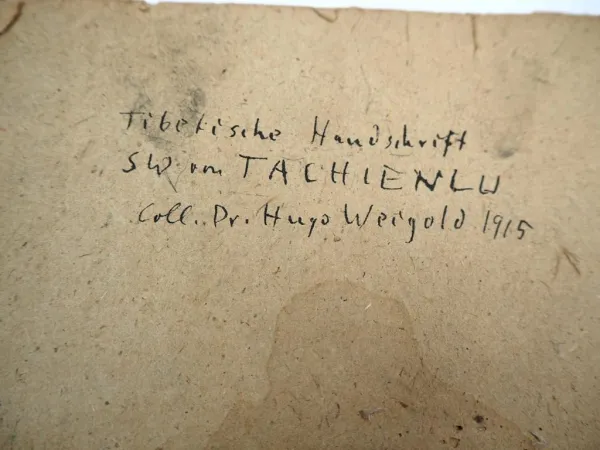 Tibetische Handschrift
SW von TACHIENLU
Coll. Dr. Hugo Weigold 1915